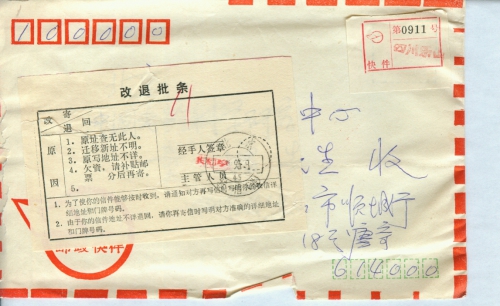 100000
第0911号
快件
改退批条
改寄
退回
原因
1．原址查无此人。
2．迁移新址不明。
3．原写地址不详。
4．欠资，请补贴邮票 分后再寄。
5．
经手人签章
主管人员
1．为了使你的信件能够按时收到，请通知对方再写信时写明详细地址和门牌号码。
2．由于你的信件地址不详退回，请你再寄信时写明对方准确的详细地址和门牌号码。
邮政快件
中心
收
市顺城街
18号
614000